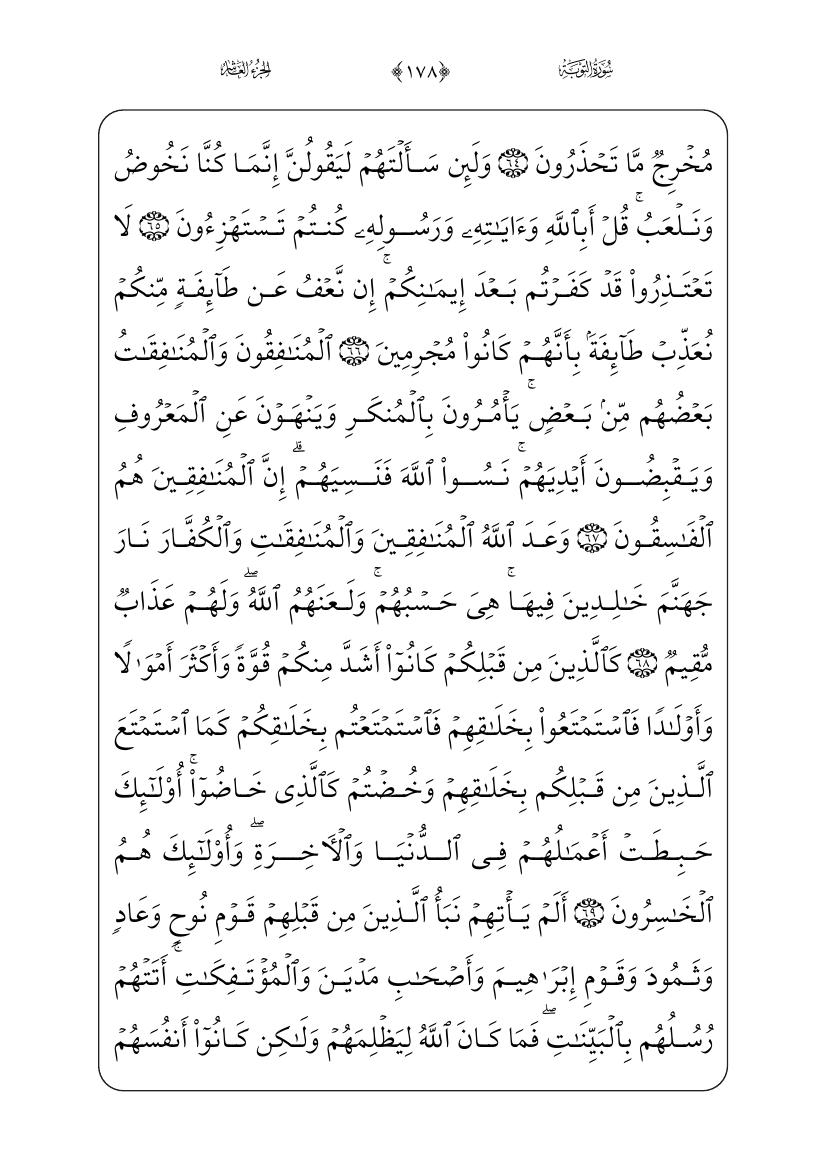 سُورَةُ التَّوْبَةِ ﴿١٧٨﴾ الجُزْءُ العَاشِرُ
مُخْرِجٌ مَّا تَحْذَرُونَ ٦٤ وَلَئِن سَأَلْتَهُمْ لَيَقُولُنَّ إِنَّمَا كُنَّا نَخُوضُ
وَنَلْعَبُ ۚ قُلْ أَبِٱللَّهِ وَءَايَٰتِهِۦ وَرَسُولِهِۦ كُنتُمْ تَسْتَهْزِءُونَ ٦٥ لَا
تَعْتَذِرُوا۟ قَدْ كَفَرْتُم بَعْدَ إِيمَٰنِكُمْ ۚ إِن نَّعْفُ عَن طَآئِفَةٍ مِّنكُمْ
نُعَذِّبْ طَآئِفَةًۢ بِأَنَّهُمْ كَانُوا۟ مُجْرِمِينَ ٦٦ ٱلْمُنَٰفِقُونَ وَٱلْمُنَٰفِقَٰتُ
بَعْضُهُم مِّنۢ بَعْضٍ ۚ يَأْمُرُونَ بِٱلْمُنكَرِ وَيَنْهَوْنَ عَنِ ٱلْمَعْرُوفِ
وَيَقْبِضُونَ أَيْدِيَهُمْ ۚ نَسُوا۟ ٱللَّهَ فَنَسِيَهُمْ ۗ إِنَّ ٱلْمُنَٰفِقِينَ هُمُ
ٱلْفَٰسِقُونَ ٦٧ وَعَدَ ٱللَّهُ ٱلْمُنَٰفِقِينَ وَٱلْمُنَٰفِقَٰتِ وَٱلْكُفَّارَ نَارَ
جَهَنَّمَ خَٰلِدِينَ فِيهَا ۚ هِىَ حَسْبُهُمْ ۚ وَلَعَنَهُمُ ٱللَّهُ ۖ وَلَهُمْ عَذَابٌ
مُّقِيمٌ ٦٨ كَٱلَّذِينَ مِن قَبْلِكُمْ كَانُوٓا۟ أَشَدَّ مِنكُمْ قُوَّةً وَأَكْثَرَ أَمْوَٰلًا
وَأَوْلَٰدًا فَٱسْتَمْتَعُوا۟ بِخَلَٰقِهِمْ فَٱسْتَمْتَعْتُم بِخَلَٰقِكُمْ كَمَا ٱسْتَمْتَعَ
ٱلَّذِينَ مِن قَبْلِكُم بِخَلَٰقِهِمْ وَخُضْتُمْ كَٱلَّذِى خَاضُوٓا۟ ۚ أُو۟لَٰٓئِكَ
حَبِطَتْ أَعْمَٰلُهُمْ فِى ٱلدُّنْيَا وَٱلْءَاخِرَةِ ۖ وَأُو۟لَٰٓئِكَ هُمُ
ٱلْخَٰسِرُونَ ٦٩ أَلَمْ يَأْتِهِمْ نَبَأُ ٱلَّذِينَ مِن قَبْلِهِمْ قَوْمِ نُوحٍ وَعَادٍ
وَثَمُودَ وَقَوْمِ إِبْرَٰهِيمَ وَأَصْحَٰبِ مَدْيَنَ وَٱلْمُؤْتَفِكَٰتِ ۚ أَتَتْهُمْ
رُسُلُهُم بِٱلْبَيِّنَٰتِ ۖ فَمَا كَانَ ٱللَّهُ لِيَظْلِمَهُمْ وَلَٰكِن كَانُوٓا۟ أَنفُسَهُمْ